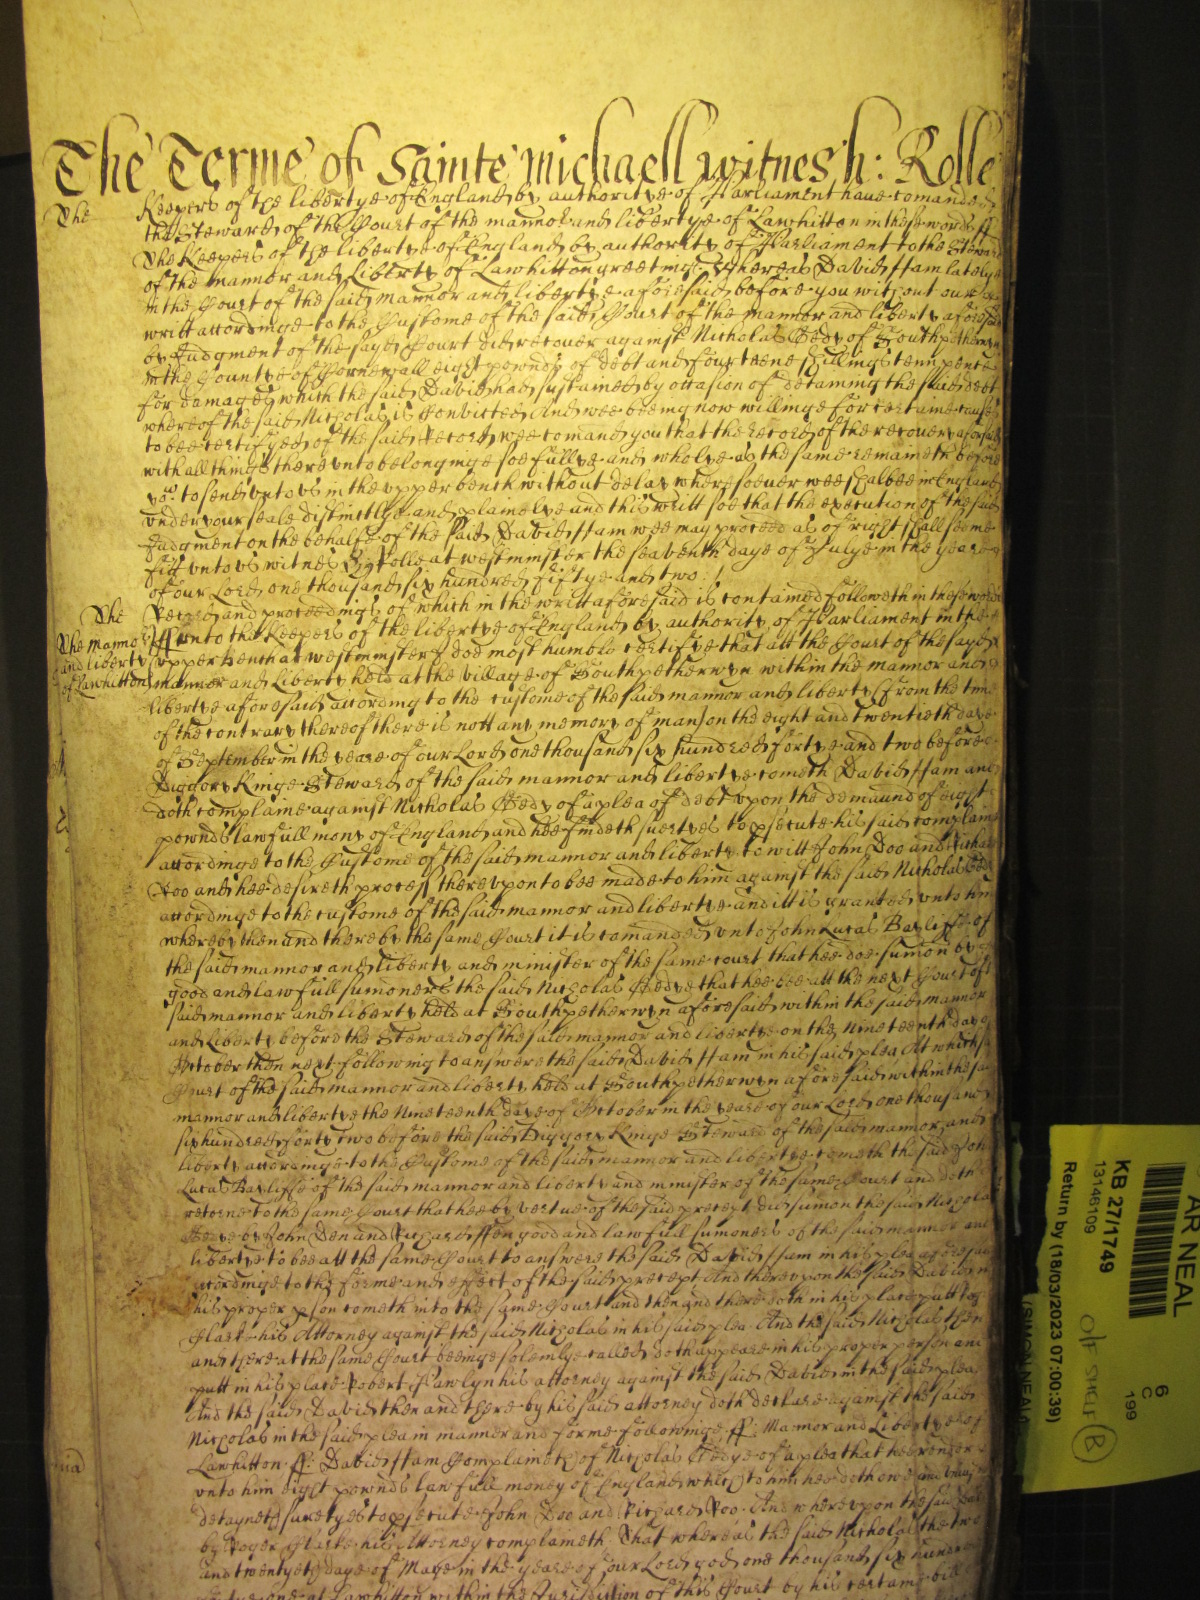 The Terme of Sainte Michaell witnes h: Rolle
The Keepers of the libertye of England by authoritye of Parliament have comanded
the Steward of the Court of the mannor and libertye of Lawhitton in these words ff
The Keepers of the libertye of England by authority of Parliament to the Steward
of the mannor and Liberty of Lawhitton greeting Whereas David Ham lately
in the Court of the said mannor and libertye aforesaid before you without our
writt accordinge to the Custome of the said Court of the mannor and liberty aforesaid
by Judgment of the sayd Court did recover against Nicholas Gedy of Southpetherwyn
in the Countye of Cornewall eight pownds of debt and fourteene shillings tenn pence
for damages which the said David had sustained by occasion of detaining the said debt
whereof the said Nicholas is Convicted And wee beeing now willinge for certaine causes
to bee certifyed of the said Record wee comand you that the record of the recovery aforesaid
with all things thereunto belonginge soe fullye and wholye as the same remaineth before
you to send unto us in the upper bench without delay wheresoever wee shalbee in England
under your seale distinctlye and plainelye and this writt soe that the execution of the said
Judgment on the behalfe of the said David Ham wee may proceed as of right shall seeme
fitt unto us witnes H Rolle at westminster the seaventh daye of Julye in the yeare
of our Lord one thousand six hundred fiftye and two
The Record and proceedings of which in the writt aforesaid is contained followeth in these words
The Mannor and liberty of Lawhitton
ff unto the Keepers of the libertye of England by authority of Parliament in the
upper bench at westminster I doe most humble certifye that att the Court of the sayd
mannor and Liberty held at the village of Southpetherwyn within the mannor and
libertye aforesaid according to the custome of the said mannor and liberty (from the time
of the contrary thereof there is nott any memory of man) on the eight and twentieth daye
of September in the yeare of our Lord one thousand six hundred fortye and two before
Diggory Kinge Steward of the said mannor and libertye cometh David Ham and
doth complaine against Nicholas Gedy of a plea of debt upon the demaund of eight
pownds lawfull mony of England and hee findeth suertyes to psecute his said complaint
accordinge to the Custome of the said mannor and liberty to witt John Doo and Richard
Roo and hee desireth process thereupon to bee made to him against the said Nicholas Gedy
accordinge to the custome of the said mannor and libertye and itt is granted unto him
whereby then and there by the same Court it is comanded unto John Lucas Bayliffe of
the said mannor and liberty and minister of the same court that hee doe sumon by
good and lawfull sumoners the said Nicholas Gedye that hee bee att the next Court of
said mannor and liberty held at Southpetherwyn aforesaid within the said mannor
and Liberty before the Steward of the said mannor and libertye on the Nineteenth day of
October then next following to answere the said David Ham in his said plea At which
Court of the said mannor and liberty held at Southpetherwyn aforesaid within the said
mannor and libertye the Nineteenth daye of October in the yeare of our Lord one thousand
six hundred forty two before the said Diggory Kinge Steward of the said mannor and
liberty accordinge to the Custome of the said mannor and libertye cometh the said John
Lucas Bayliffe of the said mannor and liberty and minister of the same Court and doth
retorne to the same Court that hee by vertue of the said precept did sumon the said Nicholas
Gedye by John Den and Richard Fen good and lawfull sumoners of the said mannor and
libertye to bee att the same Court to answere the said David Ham in his plea aforesaid
accordinge to the forme and effect of the said precept And thereupon the said David in
his proper pson cometh into the same Court and then and there doth in his place putt
Clarke his Attorney against the said Nicholas in his said plea And the said Nicholas then
and there at the same Court beeinge solemlye called doth appeare in his proper person and
putt in his place Robert Pawlyn his attorney against the said David in the said plea
And the said David then and there by his said attorney doth declare against the said
Nicholas in the said plea in manner and forme followinge ff Mannor and Libertye of
Lawhitton ff David Ham Complaineth of Nicholas Gedye of a plea that hee render
unto him eight pownds lawfull money of England which to him hee doth owe and
detayneth suretyes to psecute John Doo and Richard Roo And whereupon the said
by Roger Clarke his Attorney complaineth That whereas the said Nicholas the two
and twentyeth daye of Maye in the yeare of our Lord god one thousand six hundred
at Lawhitton within the Jurisdiction of this Court by his certaine bill
AR NEAL
6
C
199
KB 27/1749
13146109
Return by (18/03/2023 07:00:39)
(SIMON NEAL)
B